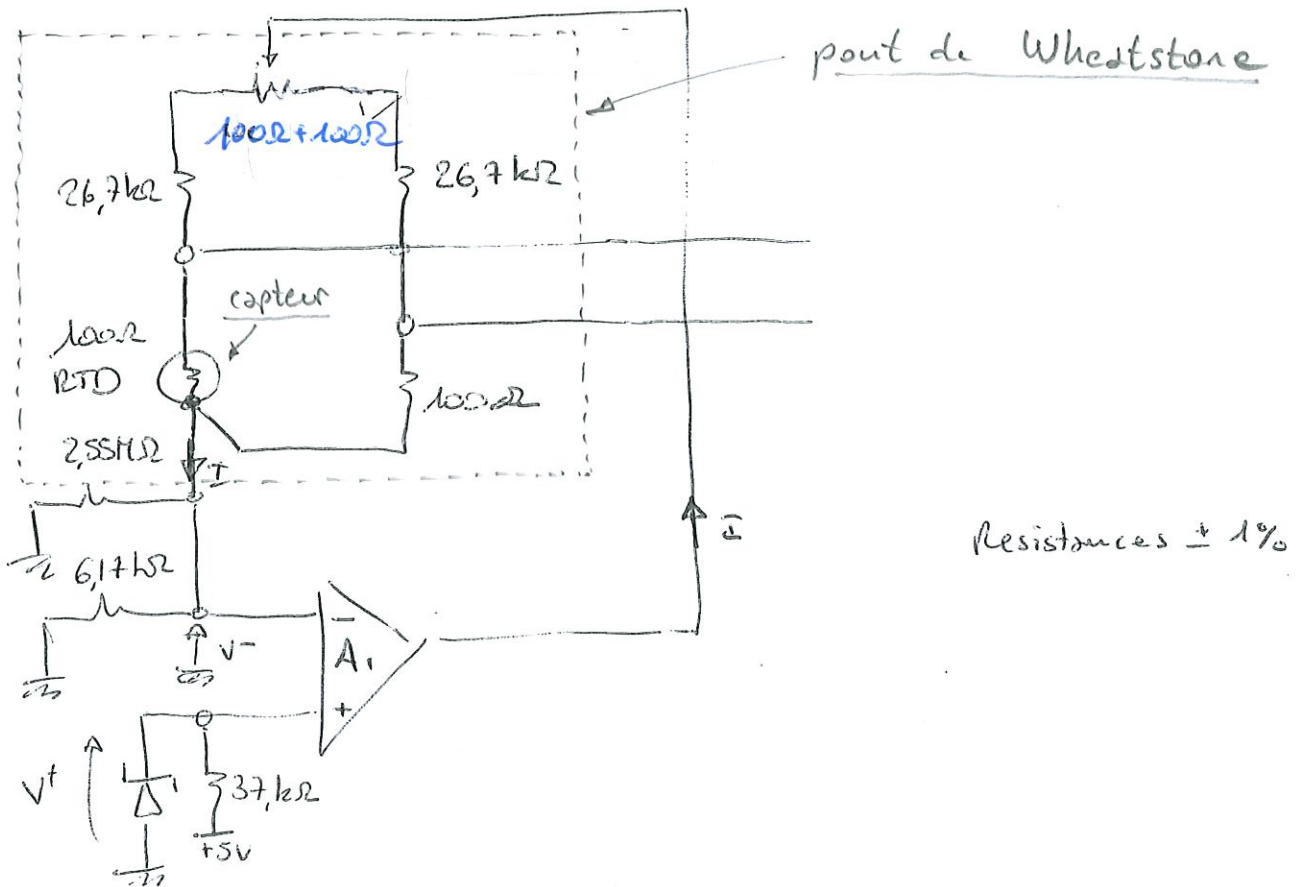 pont de Wheatstone
100Ω+100Ω
26,7kΩ
26,7kΩ
capteur
100Ω
RTD
100Ω
2,55MΩ
I
I
Resistances ± 1%
6,17kΩ
V-
-
A1
+
V+
37,kΩ
+5V